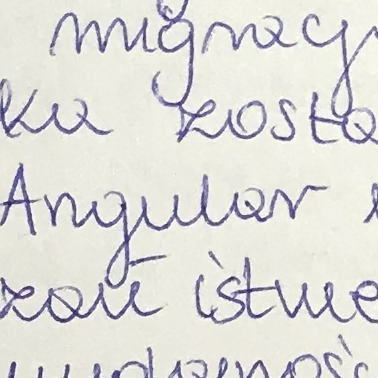 migracj
ku zosta
Angular
zań istnie